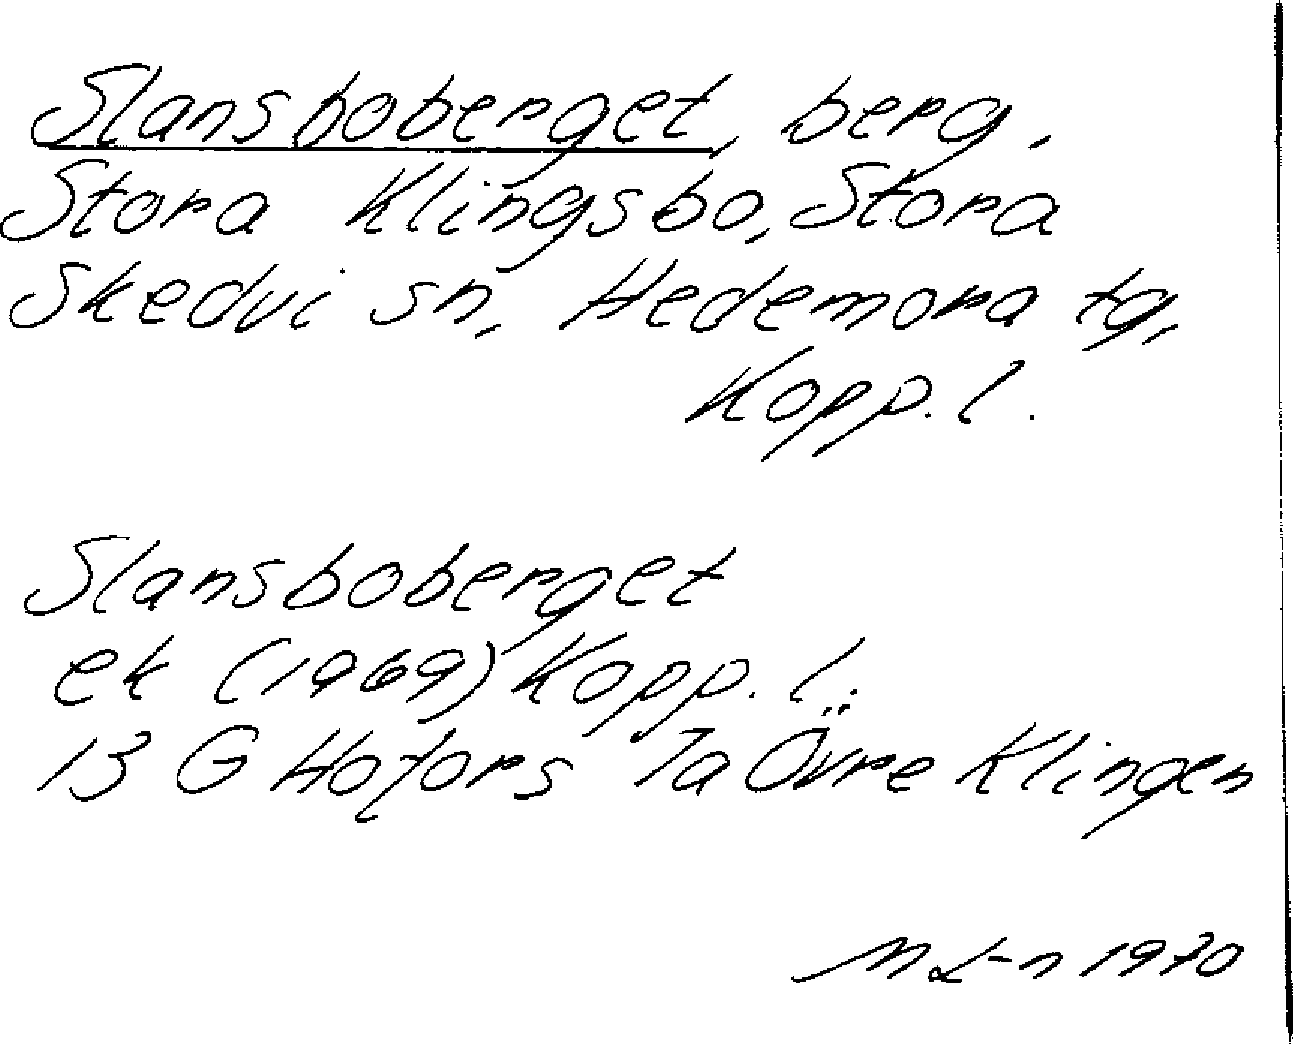 Slansboberget, berg,
Stora Klingsbo, Stora
Skedvi sn, Hedemora tg,
Kopp. l.
Slansboberget
ek (1969) Kopp. l.
13 G Hofors 7a Övre Klingen
M L-n 1970